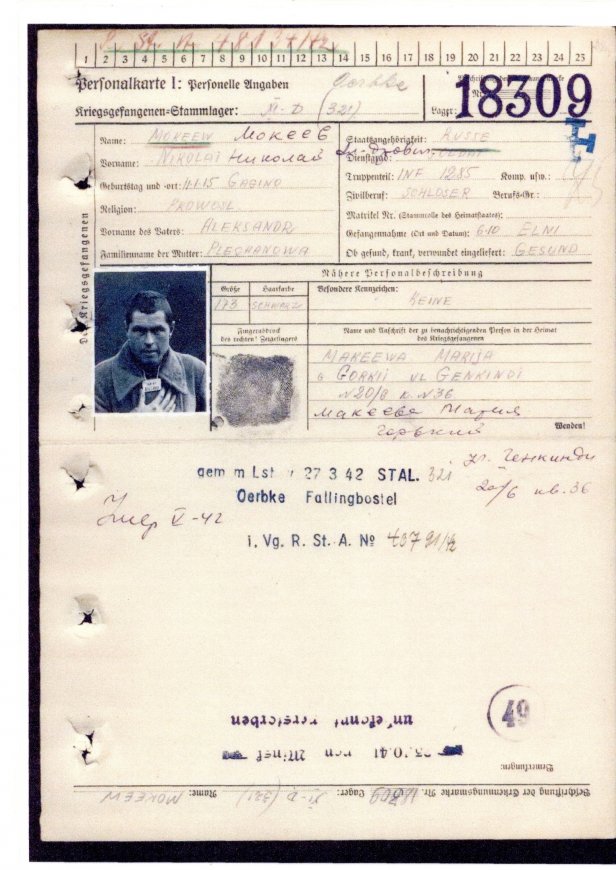 1 2 3 4 5 6 7 8 9 10 11 12 13 14 15 16 17 18 19 20 21 22 23
Personalkarte I: Personelle Angaben
Oerbke
Kriegsgefangenen-Stammlager: XI-D (321)
Lager:
18309
Name: MOKEEW Мокеев
Vorname: NIKOLAI Николай
Geburtstag und -ort: 11.1.15 GAGINO
Religion: PROWOSL
Vorname des Vaters: ALEKSANDR
Familienname der Mutter: PLECHANOWA
Staatsangehörigkeit: RUSSE
Dienstgrad: SOLDAT
Truppenteil: INF 1285 Komp. usw.:
Zivilberuf: SCHLOSER Berufs-Gr.:
Matrikel Nr. (Stammrolle des Heimatstaates):
Gefangennahme (Ort und Datum): 6·10 ELNI
Ob gesund, krank, verwundet eingeliefert: GESUND
Des Kriegsgefangenen
Nähere Personalbeschreibung
Größe Haarfarbe Besondere Kennzeichen:
173 SCHWARZ KEINE
Fingerabdruck
des rechten! Zeigefingers
Name und Anschrift der zu benachrichtigenden Person in der Heimat
des Kriegsgefangenen
MAKEEWA MARIJA
G GORKII UL GENKINDI
N 20/8 K. N 36
Макеева Мария
Горький
Wenden!
ул. Генкинди
20/6 кв. 36
gem m Lst 27 3 42 STAL. 321
Oerbke Fallingbostel
V-42
i. Vg. R. St. A. No
49
verstorben
von Minsk
Bemerkungen:
Beschriftung der Erkennungsmarke Nr. 18309 Lager: XI-D (321) Name: MOKEEW